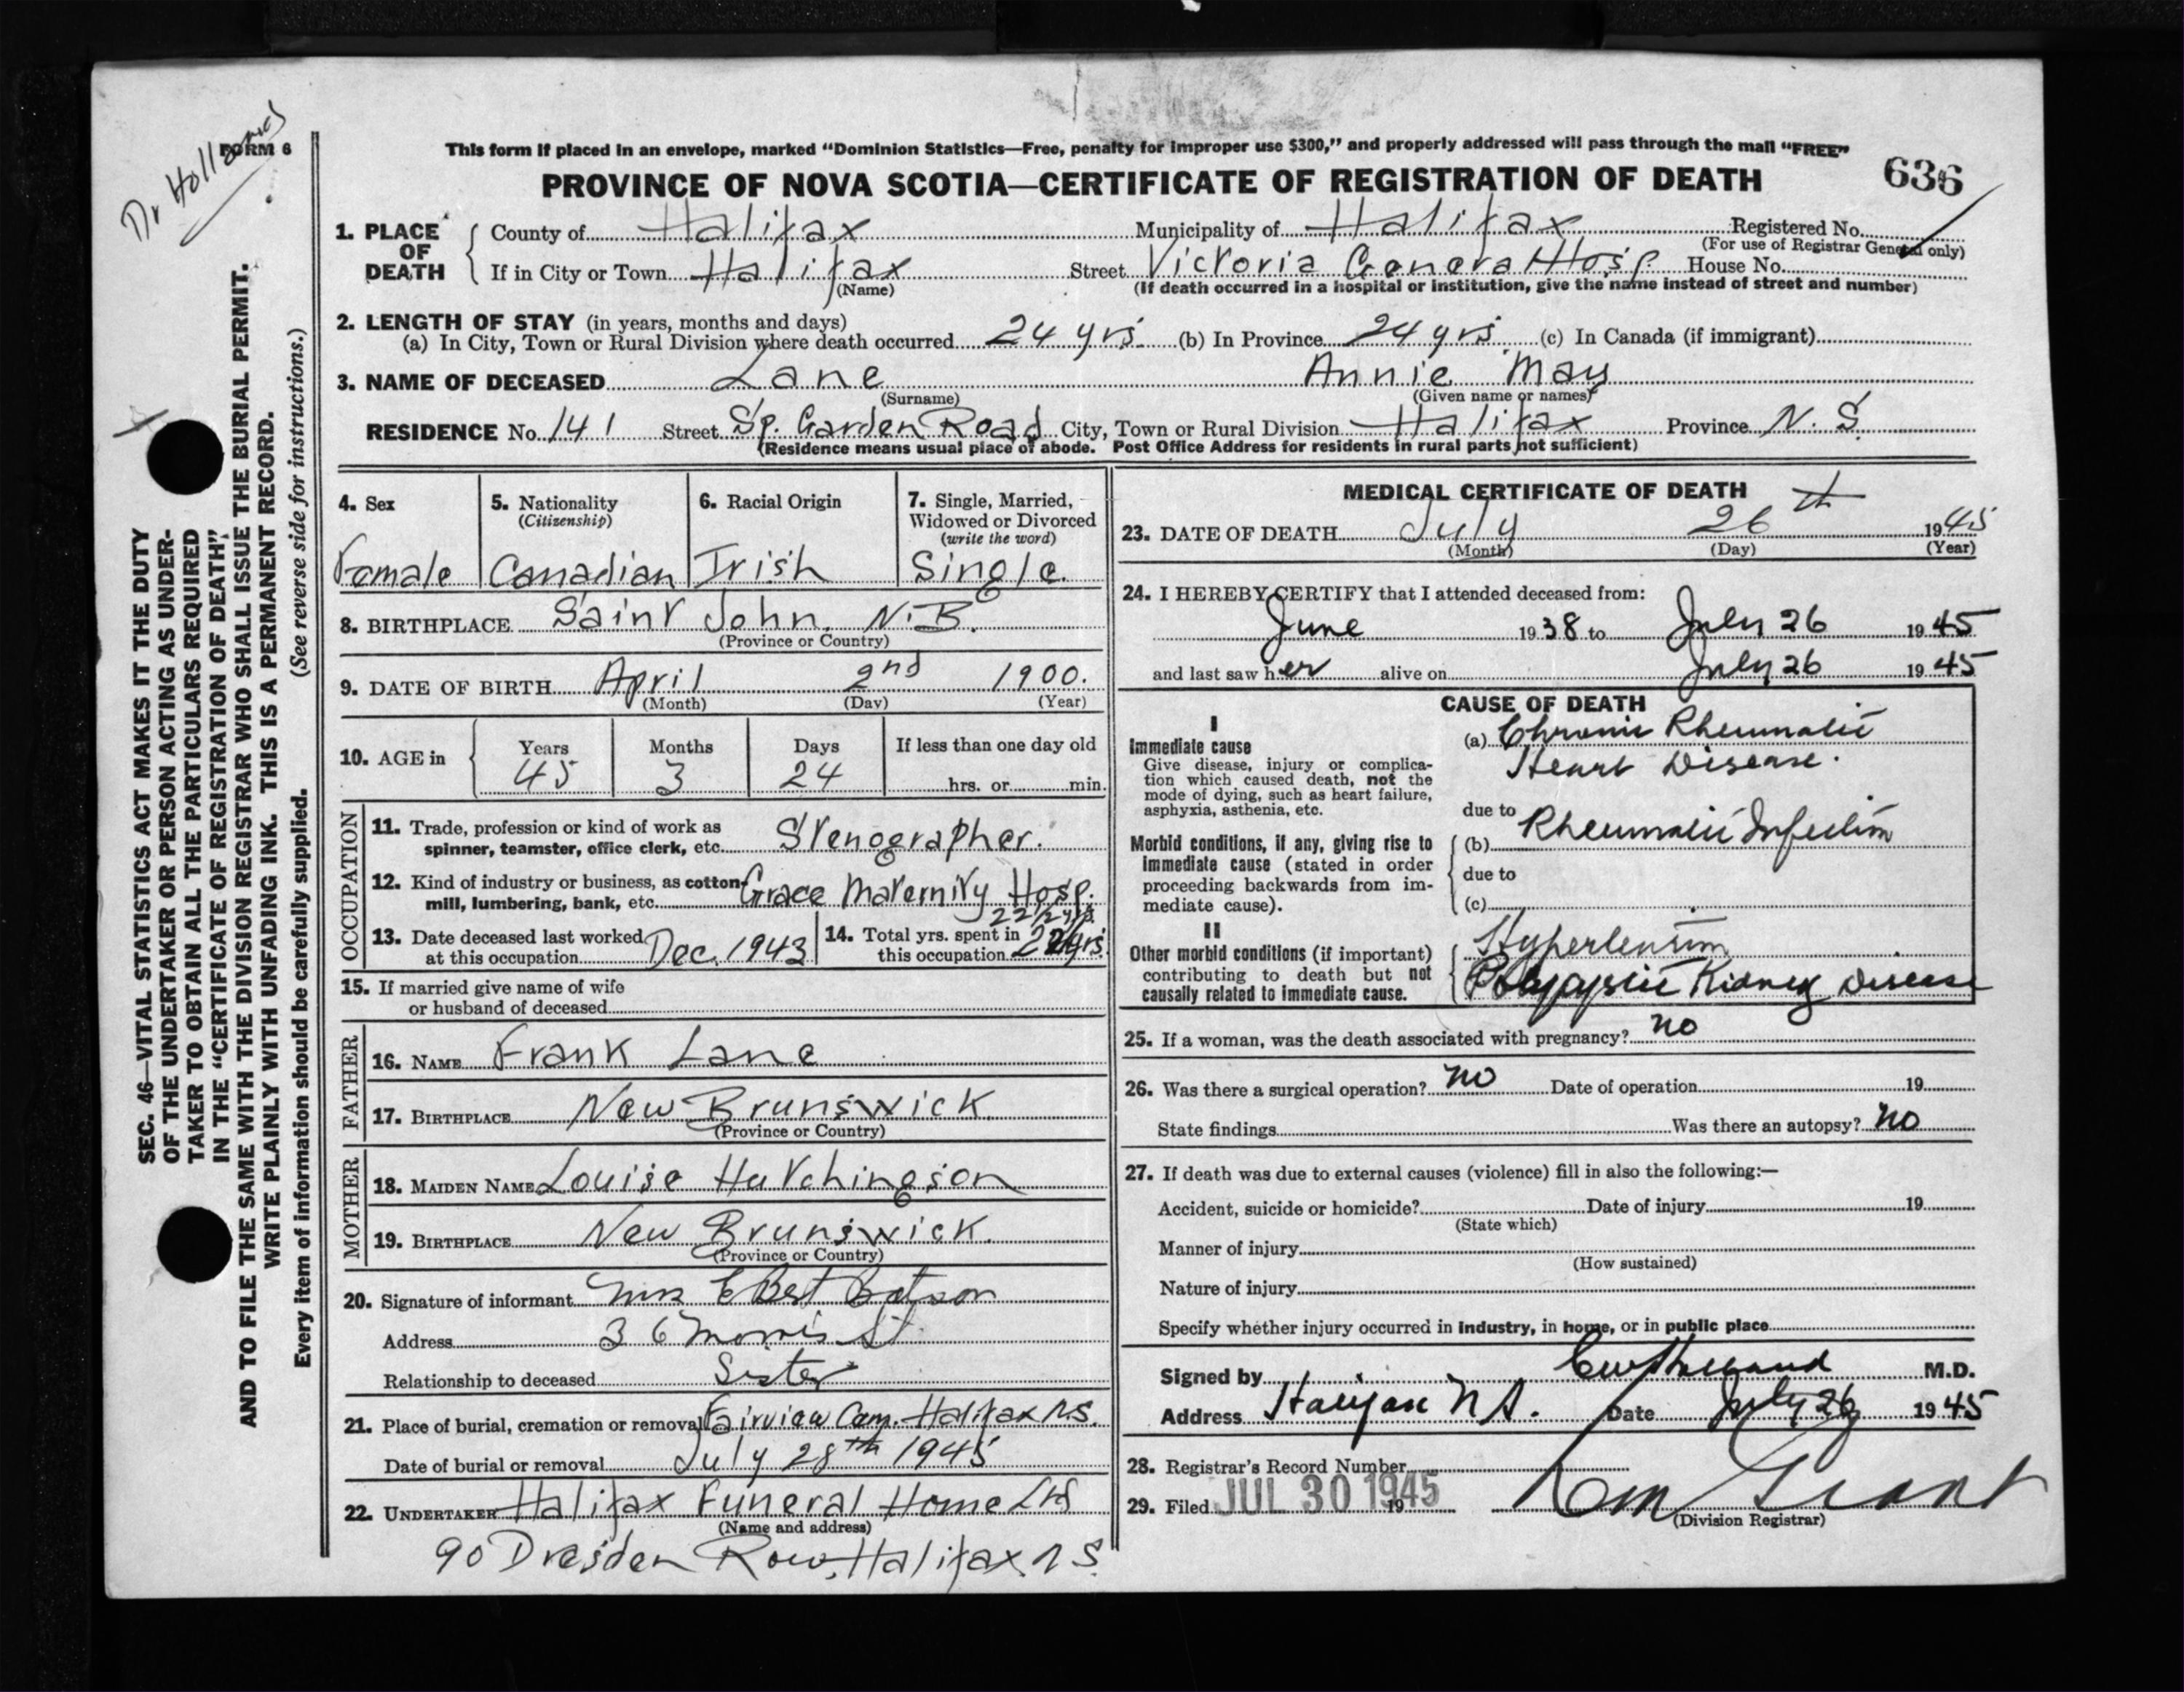 Dr Holland
FORM 6
This form if placed in an envelope, marked "Dominion Statistics—Free, penalty for improper use $300," and properly addressed will pass through the mail "FREE"
PROVINCE OF NOVA SCOTIA—CERTIFICATE OF REGISTRATION OF DEATH
636
1. PLACE OF DEATH
County of Halifax Municipality of Halifax Registered No.
(For use of Registrar General only)
If in City or Town Halifax Street Victoria General Hosp. House No.
(Name) (If death occurred in a hospital or institution, give the name instead of street and number)
2. LENGTH OF STAY (in years, months and days)
(a) In City, Town or Rural Division where death occurred 24 yrs. (b) In Province 24 yrs. (c) In Canada (if immigrant)
3. NAME OF DECEASED Lane Annie May
(Surname) (Given name or names)
RESIDENCE No. 141 Street Sp. Garden Road City, Town or Rural Division Halifax Province N. S.
(Residence means usual place of abode. Post Office Address for residents in rural parts not sufficient)
4. Sex
Female
5. Nationality
(Citizenship)
Canadian
6. Racial Origin
Irish
7. Single, Married,
Widowed or Divorced
(write the word)
Single
8. BIRTHPLACE Saint John. N.B.
(Province or Country)
9. DATE OF BIRTH April 2nd 1900.
(Month) (Day) (Year)
10. AGE in
Years Months Days If less than one day old
45 3 24 hrs. or min.
OCCUPATION
11. Trade, profession or kind of work as
spinner, teamster, office clerk, etc. Stenographer.
12. Kind of industry or business, as cotton
mill, lumbering, bank, etc. Grace Maternity Hosp.
13. Date deceased last worked
at this occupation Dec. 1943
14. Total yrs. spent in 22 1/2 yrs.
this occupation
15. If married give name of wife
or husband of deceased
FATHER
16. NAME Frank Lane
17. BIRTHPLACE New Brunswick
(Province or Country)
MOTHER
18. MAIDEN NAME Louise Hutchingson
19. BIRTHPLACE New Brunswick.
(Province or Country)
20. Signature of informant Mrs E Bert Batson
Address 36 Morris St.
Relationship to deceased Sister
21. Place of burial, cremation or removal Fairview Cem. Halifax N.S.
Date of burial or removal July 28th 1945
22. UNDERTAKER Halifax Funeral Home Ltd
(Name and address)
90 Dresden Row, Halifax N S.
MEDICAL CERTIFICATE OF DEATH
23. DATE OF DEATH July 26th 1945
(Month) (Day) (Year)
24. I HEREBY CERTIFY that I attended deceased from:
June 1938 to July 26 1945
and last saw her alive on July 26 1945
CAUSE OF DEATH
I
Immediate cause
Give disease, injury or complica-
tion which caused death, not the
mode of dying, such as heart failure,
asphyxia, asthenia, etc.
(a) Chronic Rheumatic
Heart Disease.
due to
Morbid conditions, if any, giving rise to
immediate cause (stated in order
proceeding backwards from im-
mediate cause).
(b) Rheumatic Infection
due to
(c)
II
Other morbid conditions (if important)
contributing to death but not
causally related to immediate cause.
Hypertension
Polycystic Kidney Disease
25. If a woman, was the death associated with pregnancy? no
26. Was there a surgical operation? no Date of operation 19
State findings Was there an autopsy? no
27. If death was due to external causes (violence) fill in also the following:—
Accident, suicide or homicide? Date of injury 19
(State which)
Manner of injury
(How sustained)
Nature of injury
Specify whether injury occurred in industry, in home, or in public place
Signed by CW Holland M.D.
Address Halifax N S. Date July 26 1945
28. Registrar's Record Number
29. Filed JUL 30 1945 19 Grant
(Division Registrar)
SEC. 46—VITAL STATISTICS ACT MAKES IT THE DUTY
OF THE UNDERTAKER OR PERSON ACTING AS UNDER-
TAKER TO OBTAIN ALL THE PARTICULARS REQUIRED
IN THE "CERTIFICATE OF REGISTRATION OF DEATH"
AND TO FILE THE SAME WITH THE DIVISION REGISTRAR WHO SHALL ISSUE THE BURIAL PERMIT.
WRITE PLAINLY WITH UNFADING INK. THIS IS A PERMANENT RECORD.
Every item of information should be carefully supplied. (See reverse side for instructions.)